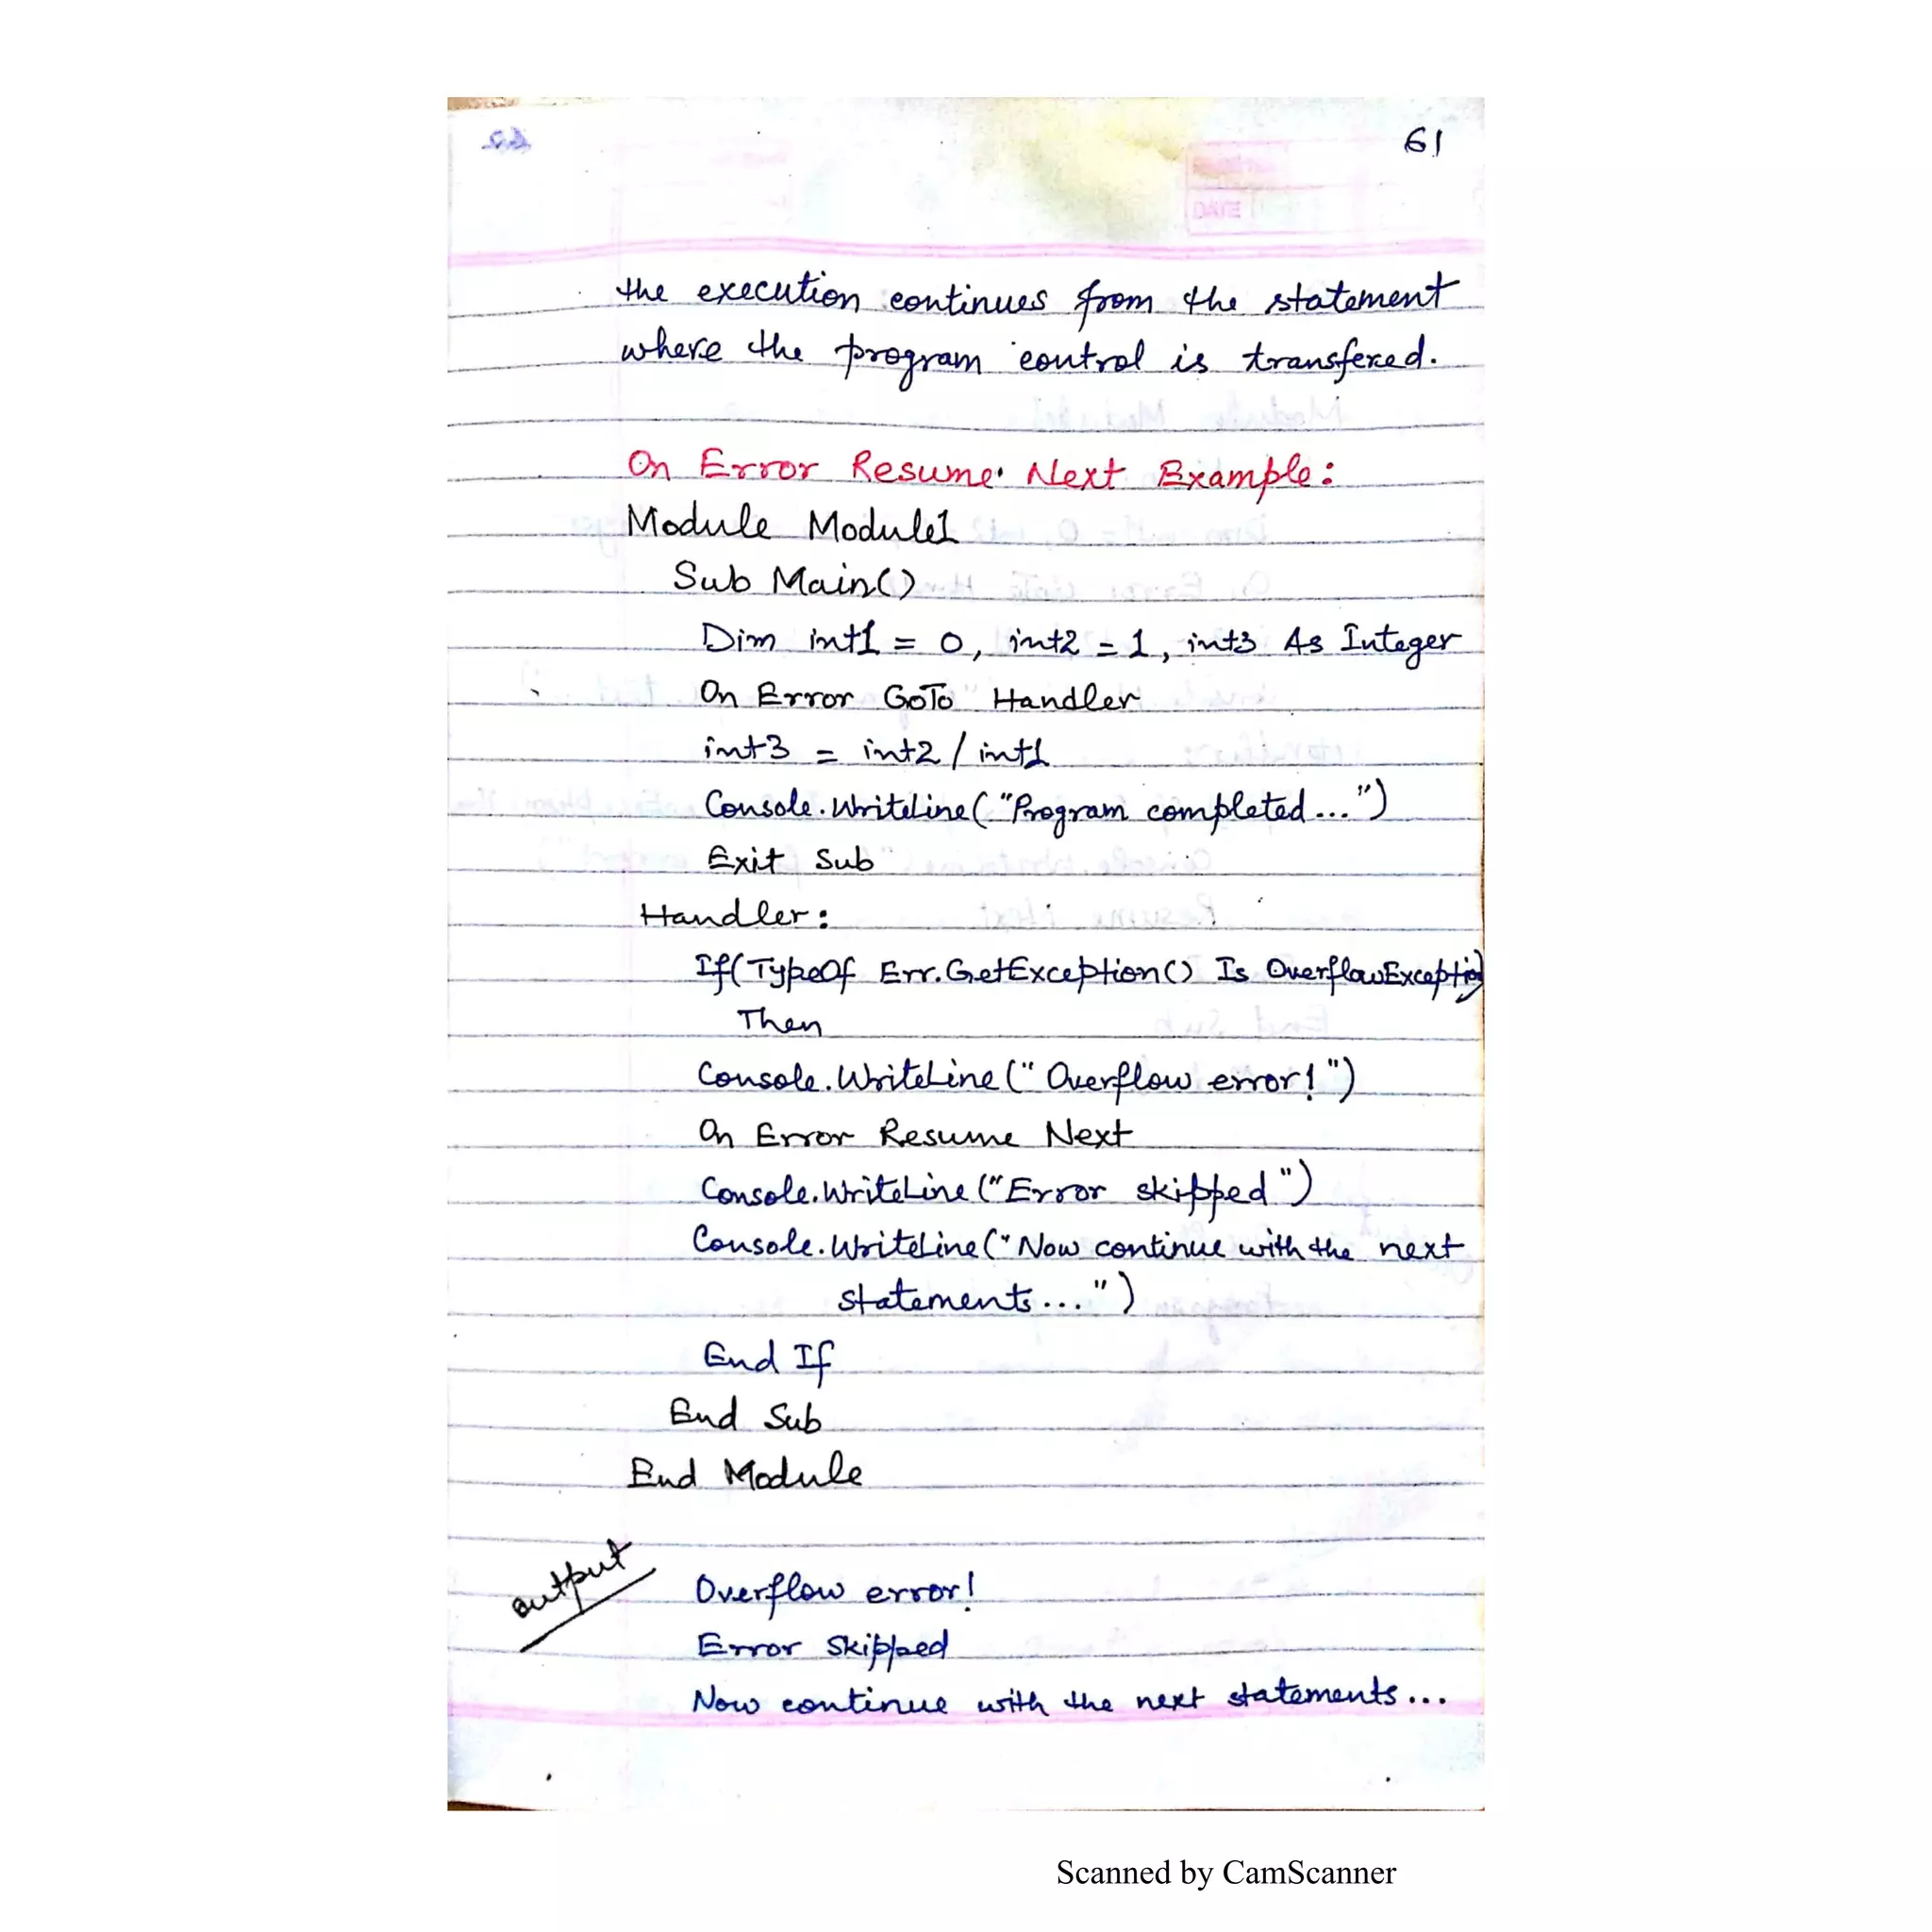 61
DATE
the execution continues from the statement
where the program control is transfered.
On Error Resume Next Example:
Module Module1
Sub Main()
Dim int1 = 0, int2 = 1, int3 As Integer
On Error GoTo Handler
int3 = int2 / int1
Console.WriteLine("Program completed...")
Exit Sub
Handler:
If(TypeOf Err.GetException() Is OverflowException)
Then
Console.WriteLine("Overflow error!")
On Error Resume Next
Console.WriteLine("Error skipped")
Console.WriteLine("Now continue with the next
statements...")
End If
End Sub
End Module
output
Overflow error!
Error skipped
Now continue with the next statements...
Scanned by CamScanner